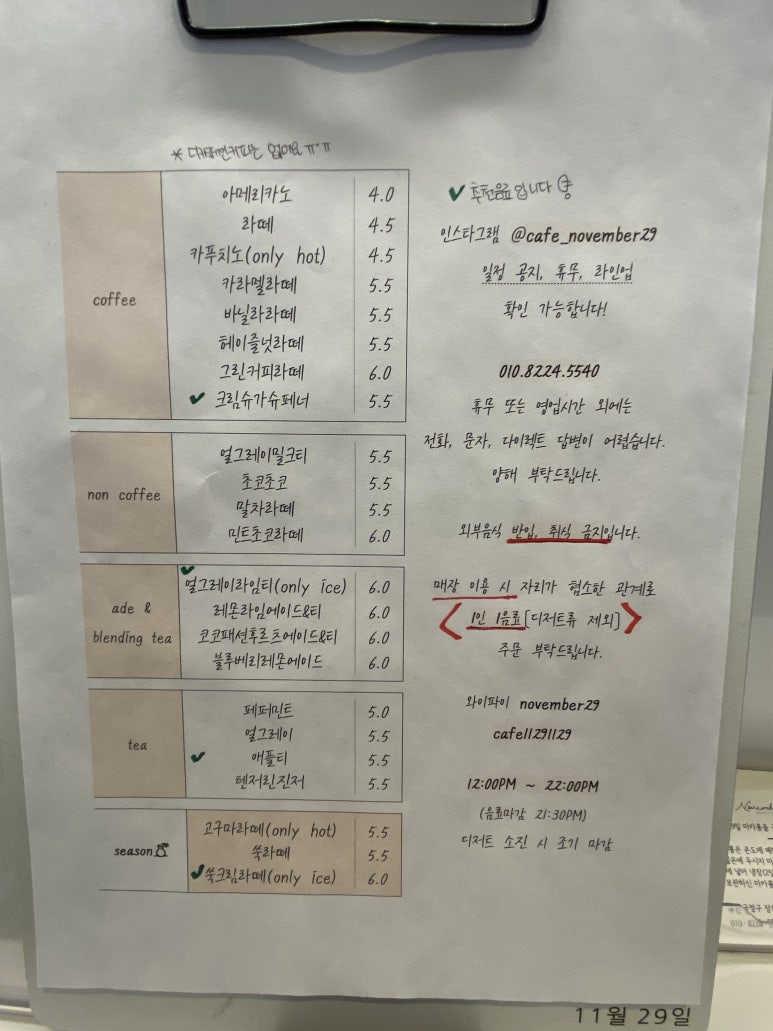 * 디카페인커피는 없어요 ㅠ°ㅠ
coffee
아메리카노 4.0
라떼 4.5
카푸치노(only hot) 4.5
카라멜라떼 5.5
바닐라라떼 5.5
헤이즐넛라떼 5.5
그린커피라떼 6.0
✓ 크림슈가슈페너 5.5
non coffee
얼그레이밀크티 5.5
초코초코 5.5
말차라떼 5.5
민트초코라떼 6.0
ade &
blending tea
✓ 얼그레이라임티(only ice) 6.0
레몬라임에이드&티 6.0
코코패션후르츠에이드&티 6.0
블루베리레몬에이드 6.0
tea
페퍼민트 5.0
얼그레이 5.5
✓ 애플티 5.5
텐저린진저 5.5
season
고구마라떼(only hot) 5.5
쑥라떼 5.5
✓ 쑥크림라떼(only ice) 6.0
✓ 추천음료입니다
인스타그램 @cafe_november29
일정 공지, 휴무, 라인업
확인 가능합니다!
010.8224.5540
휴무 또는 영업시간 외에는
전화, 문자, 다이렉트 답변이 어렵습니다.
양해 부탁드립니다.
외부음식 반입, 취식 금지입니다.
매장 이용 시 자리가 협소한 관계로
〈 1인 1음료[디저트류 제외] 〉
주문 부탁드립니다.
와이파이 november29
cafe11291129
12:00PM ~ 22:00PM
(음료마감 21:30PM)
디저트 소진 시 조기 마감
11월 29일